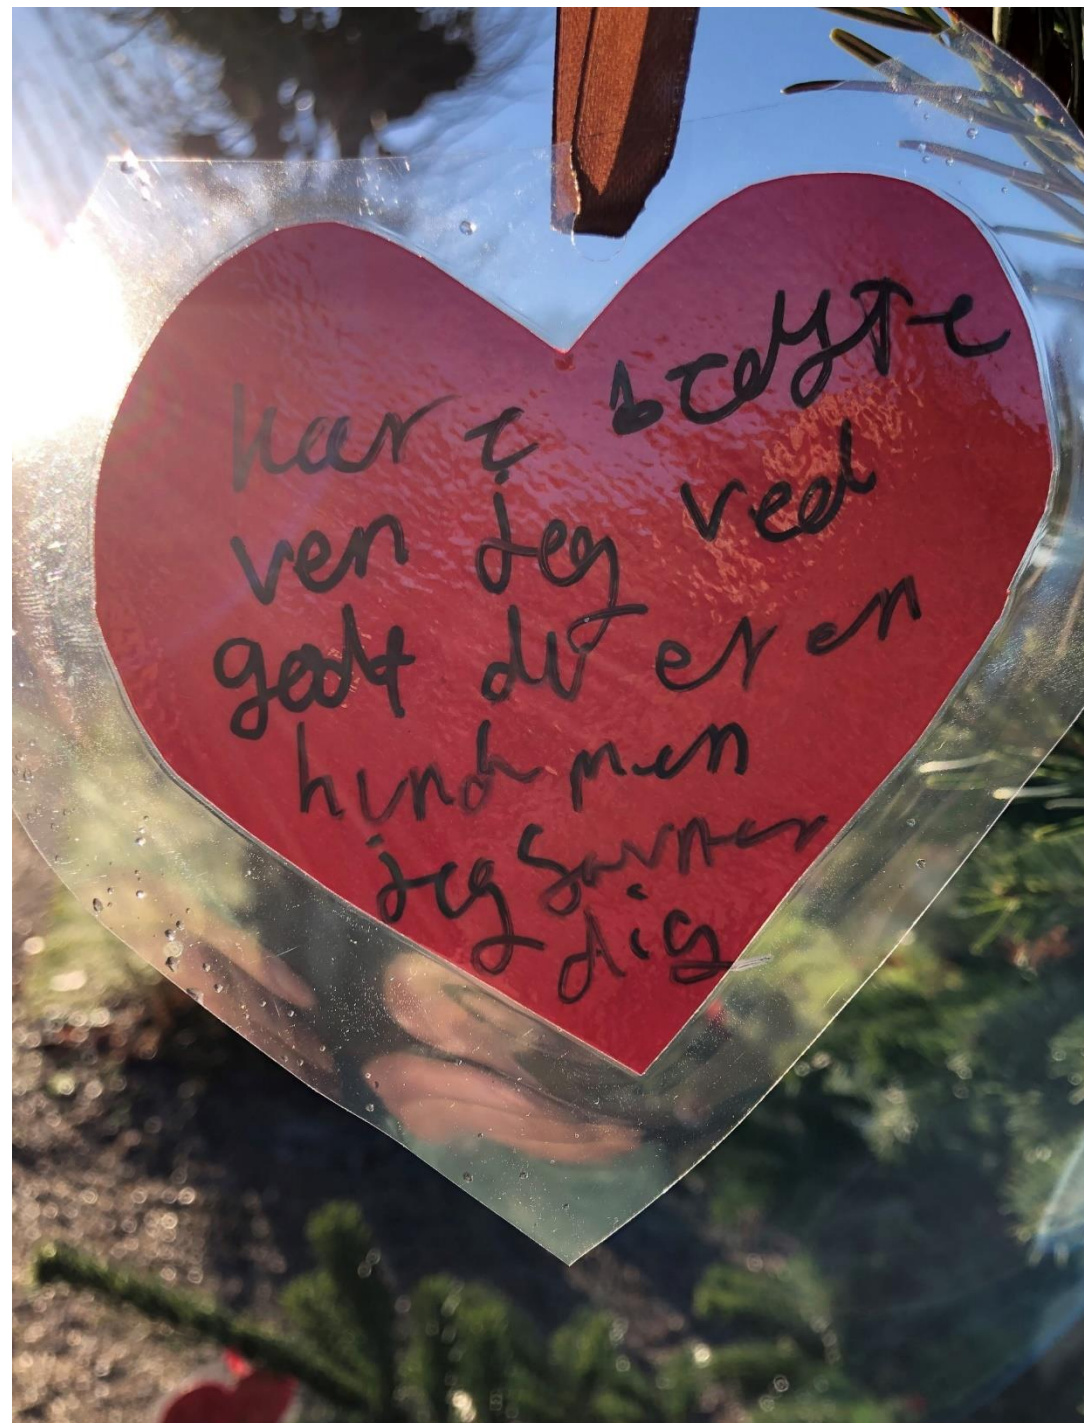 kær e
ven jeg ved
godt du er en
hund men
jeg savner
dig